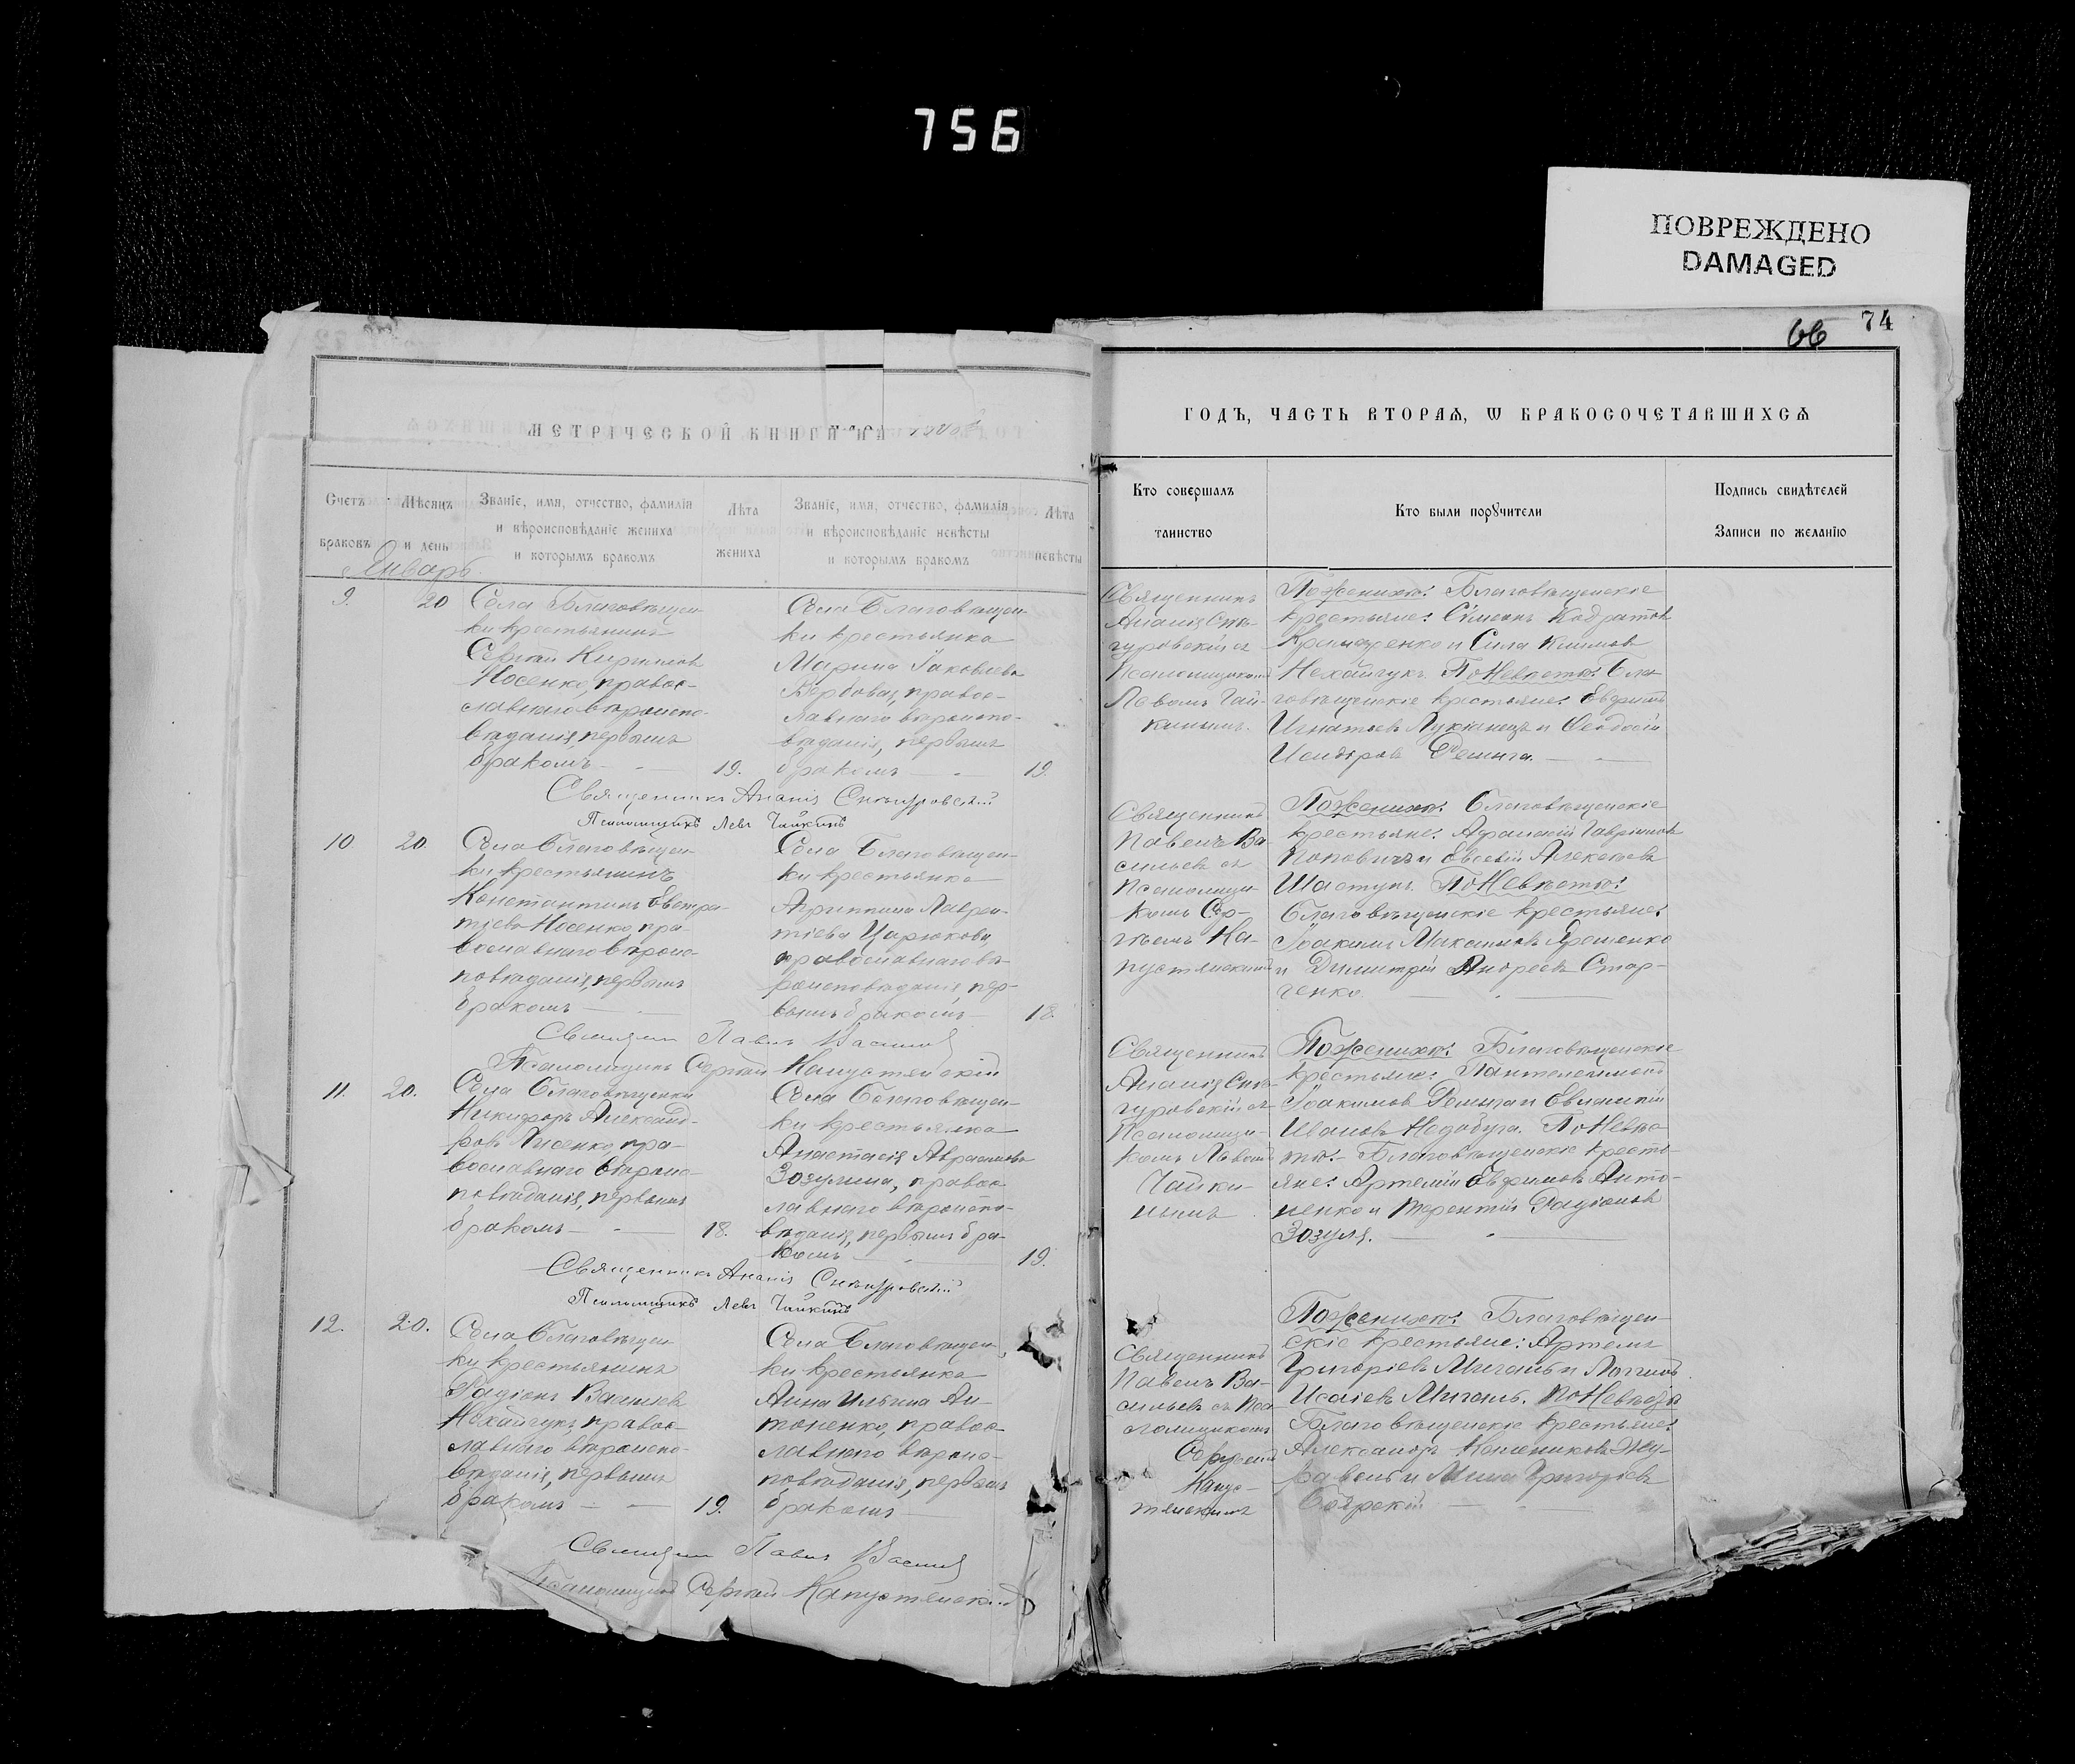 756
ПОВРЕЖДЕНО
DAMAGED
66 74
МЕТРІЧЕСКОЙ КНИГИ НА
ГОДЪ, ЧАСТЬ ВТОРАѦ, Ѡ БРАКОСОЧЕТАВШИХСѦ
Счетъ браковъ
Мѣсяцъ и день
Званіе, имя, отчество, фамилія
и вѣроисповѣданіе жениха
и которымъ бракомъ
Лѣта
жениха
Званіе, имя, отчество, фамилія
и вѣроисповѣданіе невѣсты
и которымъ бракомъ
Лѣта
невѣсты
Кто совершалъ
таинство
Кто были порꙋчители
Подпись свидѣтелей
Записи по желанію
Январь.
9.
20
Села Благовѣщен-
ки крестьянинъ
Сергѣй Кириловъ
Носенко, правос-
лавнаго вѣроиспо-
вѣданія, первымъ
бракомъ
19.
Села Благовѣщен-
ки крестьянка
Марина Іаковлева
Вербовая, правос-
лавнаго вѣроиспо-
вѣданія, первымъ
бракомъ
19.
Священникъ
Ананія Снѣ-
гуровскій съ
Псаломщикомъ
Львомъ Чай-
кинымъ.
По женихѣ: Благовѣщенскіе
крестьяне: Сѵмеонъ Кодратовъ
и Сила Климовъ
Нехайчукъ. По Невѣстѣ: Бла-
говѣщенскіе крестьяне: Евфимъ
Игнатьевъ Лукіанецъ и Ѳеодосій
Исидоровъ
Священникъ Ананія Снѣгуровскій
Псаломщикъ Левъ Чайкинъ
10
20.
Села Благовѣщен-
ки крестьянинъ
Константинъ Евстра-
тіевъ Носенко, пра-
вославнаго вѣроис-
повѣданія, первымъ
бракомъ
Села Благовѣщен-
ки крестьянка
Агриппина Лаврен-
тіева Царюкова,
православнаго вѣ-
роисповѣданія, пер-
вымъ бракомъ
18.
Священникъ
Павелъ Ва-
сильевъ съ
Псаломщи-
комъ Сер-
гѣемъ Ка-
пустянскимъ
По женихѣ: Благовѣщенскіе
крестьяне: Афанасій Гавріиловъ
Поповичъ и Евсевій Алексѣевъ
Шаступъ. По Невѣстѣ:
Благовѣщенскіе крестьяне:
Іоакимъ Максимовъ Ярошенко
и Димитрій Андреевъ Стар-
ченко.
Священникъ Павелъ Васильевъ
Псаломщикъ Сергѣй Капустянскій
11.
20.
Села Благовѣщенки
Никифоръ Александ-
ровъ Лисенко, пра-
вославнаго вѣроис-
повѣданія, первымъ
бракомъ
18.
Села Благовѣщен-
ки крестьянка
Анастасія Аврамова
Зозулина, правос-
лавнаго вѣроиспо-
вѣданія, первымъ бра-
комъ
19.
Священникъ
Ананія Снѣ-
гуровскій съ
Псаломщи-
комъ Львомъ
Чайки-
нымъ
По женихѣ: Благовѣщенскіе
крестьяне: Пантелеимонъ
Іоакимовъ и Евлампій
Ивановъ Недобуга. По Невѣс-
тѣ: Благовѣщенскіе кресть-
яне: Артемій Евфимовъ Анто-
ненко и Терентій Радіоновъ
Зозуля.
Священникъ Ананія Снѣгуровскій
Псаломщикъ Левъ Чайкинъ
12.
20.
Села Благовѣщен-
ки крестьянинъ
Радіонъ Васильевъ
Нехайчукъ, правос-
лавнаго вѣроиспо-
вѣданія, первымъ
бракомъ
19.
Села Благовѣщен-
ки крестьянка
Анна Ильина Ан-
тоненко, правос-
лавнаго вѣроис-
повѣданія, первымъ
бракомъ
Священникъ
Павелъ Ва-
сильевъ съ Пса-
ломщикомъ
Сергѣемъ
Капус-
тянскимъ
По женихѣ: Благовѣщен-
скіе крестьяне: Артемъ
Григоріевъ Мигаль и Логинъ
Исаіевъ Мигаль. По Невѣстѣ
Благовѣщенскіе крестьяне:
Александръ Жу-
равель и Мина Григоріевъ
Боярскій
Священникъ Павелъ Васильевъ
Псаломщикъ Сергѣй Капустянскій